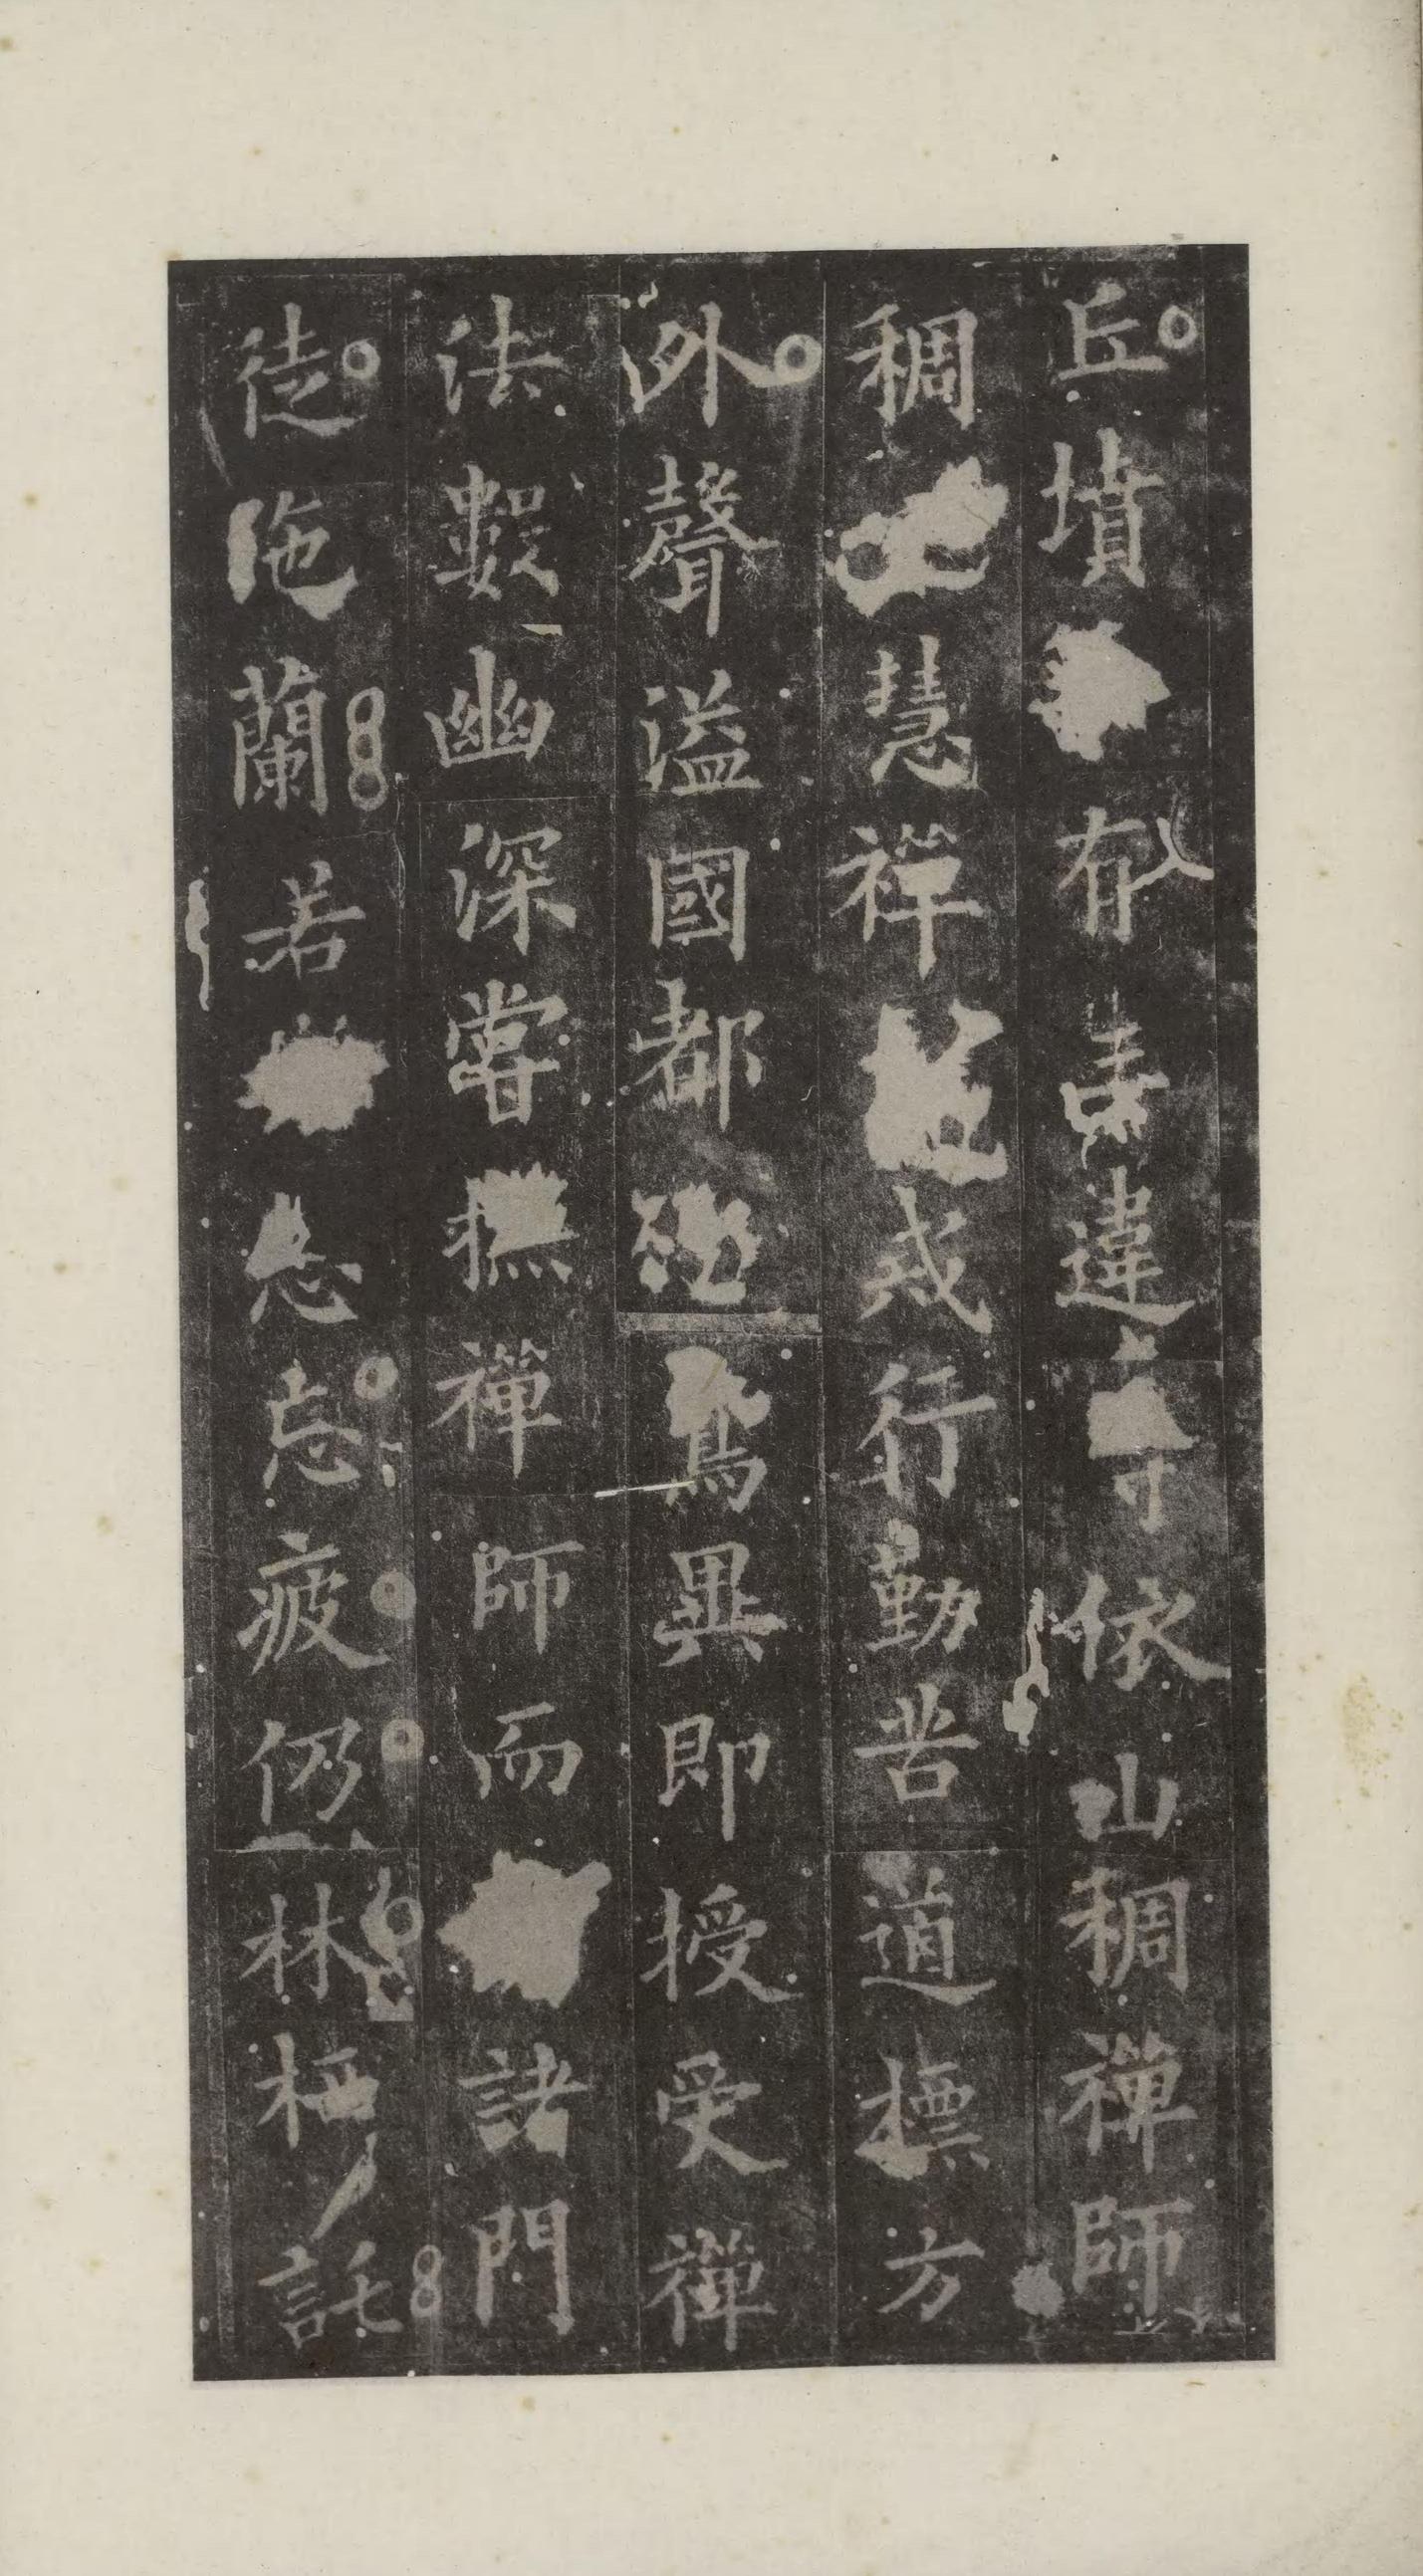 丘墳有違寺依山稠禪師
稠慧禪戒行勤苦道標方
外聲溢國都焉畢即授受禪
法數幽深嘗撫禪師而諸門
徒陁蘭若忘疲仍林栖託